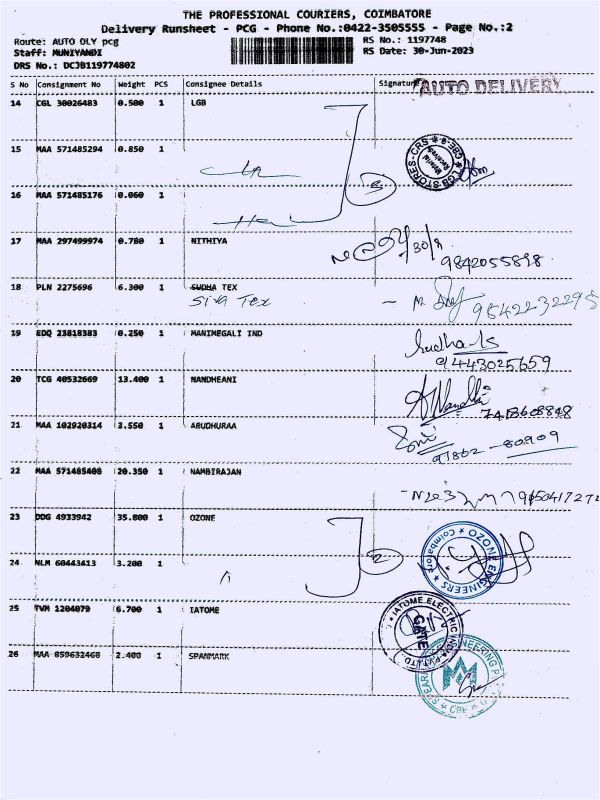 THE PROFESSIONAL COURIERS, COIMBATORE
Delivery Runsheet - PCG - Phone No.:0422-3505555 - Page No.:2
Route: AUTO DLY pcg RS No.: 1197748
Staff: MUNIYANDI RS Date: 30-Jun-2023
DRS No.: DCJB119774802
S No Consignment No Weight PCS Consignee Details Signature AUTO DELIVERY
14 CGL 30026483 0.500 1 LGB
15 MAA 571485294 0.850 1
LGB STORES-CRS CBE-6
Material Received
16 MAA 571485176 0.060 1
3
17 MAA 297499974 0.780 1 NITHIYA
30/6
9842055898
18 PLN 2275696 6.300 1 SUDHA TEX
Siva Tex 9842232295
19 EDQ 23818383 0.250 1 MANIMEGALI IND
9443025659
20 TCG 40532669 13.400 1 NANDHEANI
7418608848
21 MAA 102920314 3.550 1 ARUDHURAA
97862-80909
22 MAA 571485408 20.350 1 NAMBIRAJAN
23 DDG 4933942 35.800 1 OZONE
OZONE ENGINEERS
Coimbatore
24 NLM 60443413 3.200 1
2
25 TVM 1204079 6.700 1 IATOME
IATOME ELECTRIC
GATE
26 MAA 859632468 2.400 1 SPANMARK
CBE